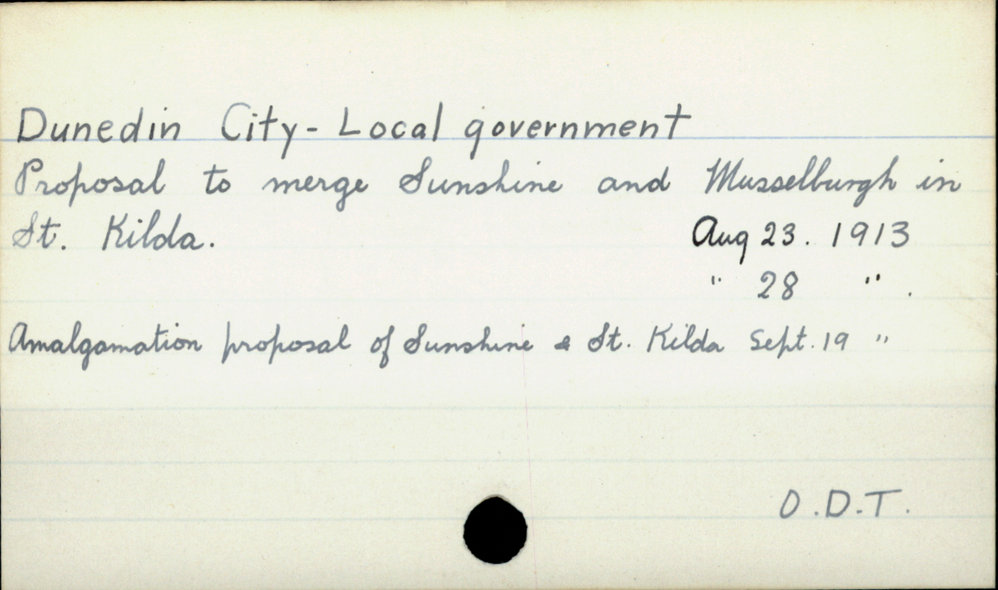 Dunedin City - Local government
Proposal to merge Sunshine and Musselburgh in
St. Kilda. Aug 23. 1913
" 28 " .
Amalgamation proposal of Sunshine & St. Kilda Sept. 19 "
O.D.T.